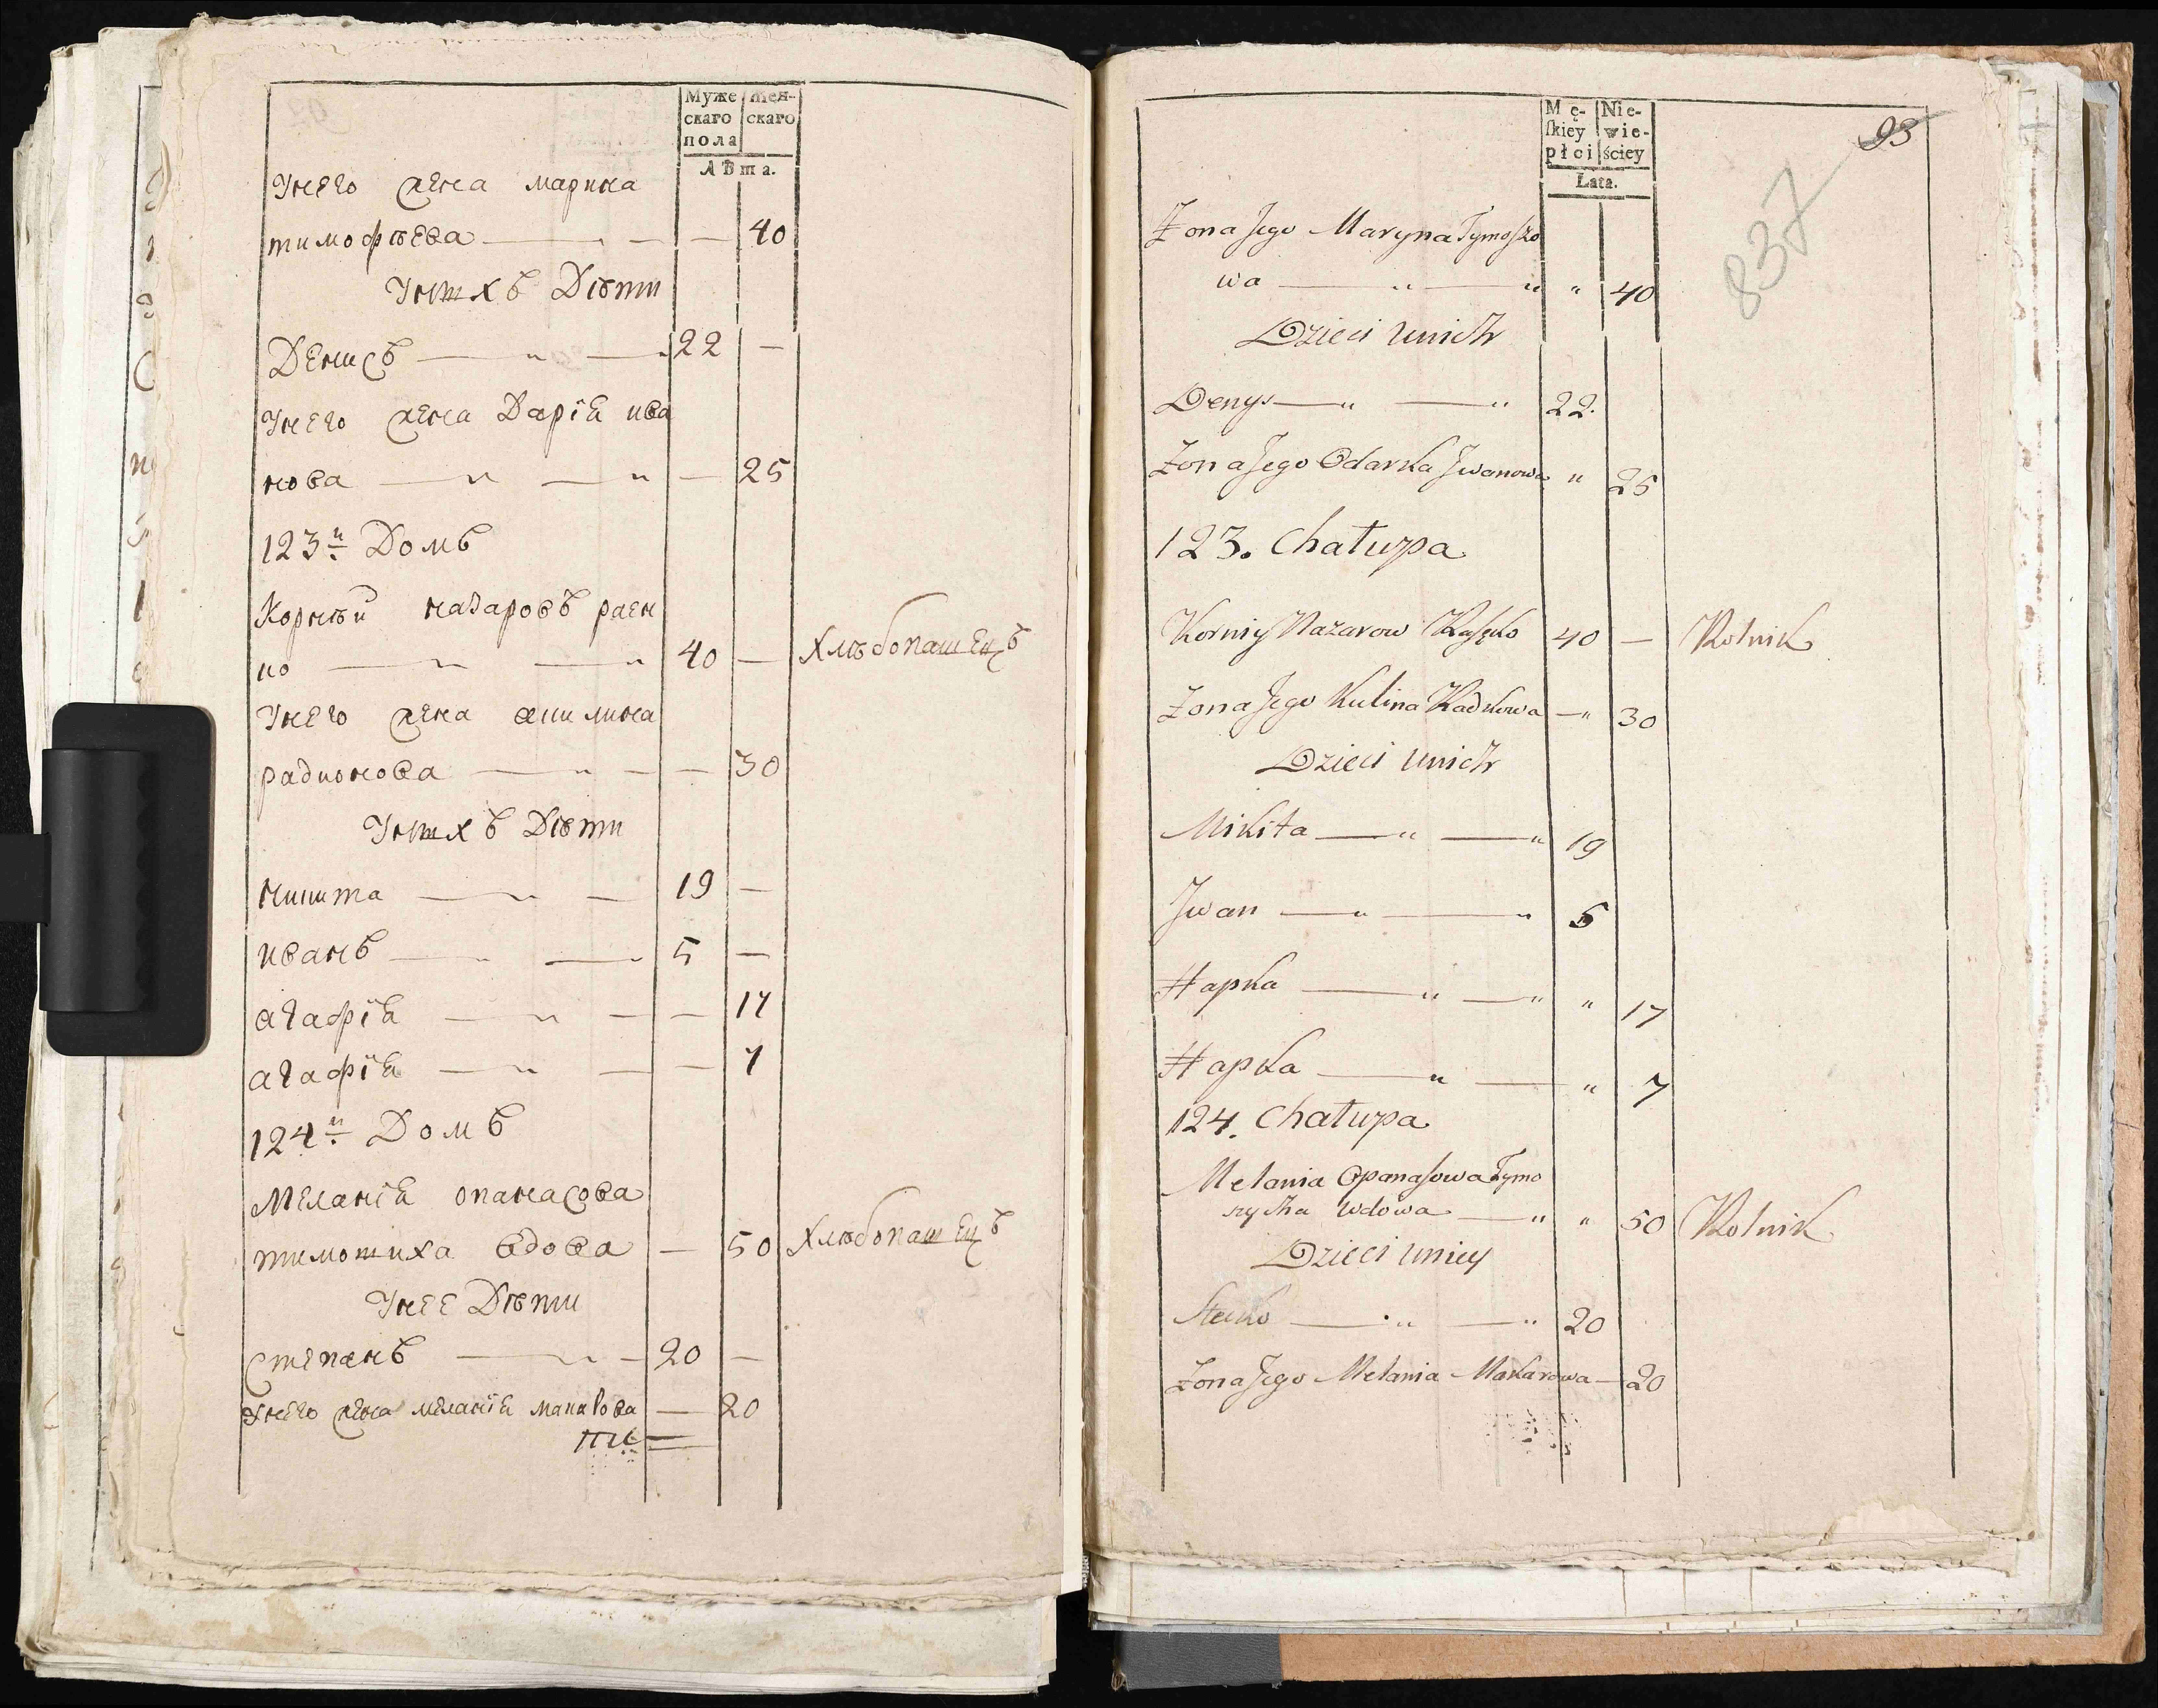 Муже
скаго
пола
жен-
скаго
Лѣта.
Унего жена марина
тимофѣева — — — 40
Унихъ Дѣти
Денисъ — „ — „ 22 —
Унего жена Дарїя ива
нова — „ — „ — 25
123й Домъ
Корнѣй назаровъ
ко — „ — „ 40 — Хлѣбопашецъ
Унего жена акилина
радионова — „ — — 30
Унихъ Дѣти
никита — „ — 19 —
иванъ — „ — „ 5 —
агафїя — „ — — 17
агафїя — „ — — 7
124й Домъ
Меланїя опанасова
тимошиха вдова — 50 Хлѣбопашецъ
Унее Дѣти
степанъ — „ — 20 —
Унего жена меланїя макарова — 20
Mę-
ſkiey
płci
Nie-
wie-
ściey
Lata.
93
837
Żona Jego Maryna Tymoszo
wa — „ — „ „ 40
Dzieci unich
Denys — „ — „ 22.
Żona Jego Odarka Jwanowa „ 25
123. Chałupa
Korniy Nazarow 40 — Rolnik
Żona Jego Kulina Radkowa — „ 30
Dzieci unich
Mikita — „ — „ 19
Jwan — „ — „ 5
Hapka — „ — „ „ 17
Hapka — „ — „ 7
124. Chałupa
Melania Opanasowa Tymo
szycha wdowa — „ „ 50 Rolnik
Dzieci uniey
Stecko — „ — „ 20
Żona Jego Melania Makarowa — 20